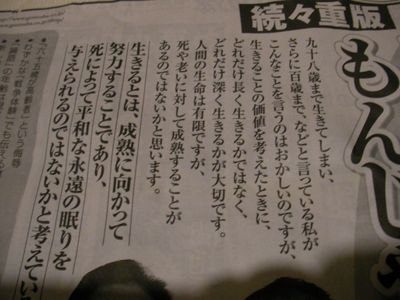 続々重版
もんじ
九十八歳まで生きてしまい、
さらに百歳まで、などと言っている私が
こんなことを言うのはおかしいのですが、
生きることの価値を考えたときに、
どれだけ長く生きるかではなく、
どれだけ深く生きるかが大切です。
人間の生命は有限ですが、
死や老いに対して成熟することが
あるのではないかと思います。
生きるとは、成熟に向かって
努力することであり、
死によって平和な永遠の眠りを
与えられるのではないかと考えてい
「六十五歳が高齢者」という侮辱
わずかな"戦争体験"でも伝える